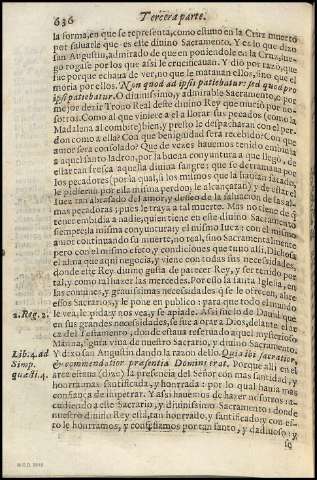 636 Tercera parte.
la forma, en que se representa, como estuuo en la Cruz muerto
por saluarle que es este diuino Sacramento. Y es lo que dixo
san Augustin, admirado de que en poniendole en la Cruz, lue-
go rogasse por los que assi le crucificauan. Y dio por razon, que
fue porque echaua de ver, no que le matauan ellos, sino que el
moria por ellos. Non quod ad ipsis patiebatur: sed quod pro
ipsis patiebatur. O diuinissimo, y admirable Sacramento, o
mejor dezir Trono Real deste diuino Rey que murio por no-
sotros. Como al que viniere a el a llorar sus pecados (como la
Madalena al combite) bien, y presto le despacharan con per-
don como a ella? Con que benignidad sera recebido? Con que
amor sera consolado? Que de vezes hauemos tenido embidia
a aquel santo ladron, por la buena conyuntura a que llegò, de
estar tan fresca aquella diuina sangre: que se derramaua por
los pecadores (por la qual, si los mismos que la
le pidieran por ella misma perdon, le alcançaran) y de estar el
Iuez tan abrasado del amor, y desseo de la saluacion de las al-
mas pecadoras; pues le traya a tal muerto. Mas no tiene que
tener embidia a nadie, quien tiene en este diuino Sacramento
siempre; la misma conyuntura: y el mismo Iuez: con el mismo
amor continuando su muerte, no real, sino Sacramentalmente
pero con el mismo efeto, y condiciones que tuuo alli, Dichosa
el alma que aqui negocia, y viene con todas sus necessidades,
donde este Rey diuino gusta de parecer Rey, y ser tenido por
tal, y como tal hazer las mercedes. Por esso la santa Iglesia, en
las comunes, y grauissimas necessidades q̃ se le ofrecen, abre
essos Sacrarios, y le pone en publico: para que todo el mundo
2. Reg. 2. le vea, le pida, y nos vea, y se apiade. Assi se lee de Dauid que
en sus grandes necessidades, se fue a orar a Dios, delante el ar-
ca del Testamento, donde estaua reseruado aquel mysterioso
Manna, figura viua de nuestro Sacrario, y diuino Sacramento.
Lib. 4. ad Y dixo san Augustin dando la razon dello. Quia ibi sacratior,
Simp. & commendatior præsentia Domini erat. Porque alli en el
quæst. 4. arca estaua (dize) la presencia del Señor con mas santidad, y
honrra: mas santificada, y honrrada: por lo qual hauia mas
confiança de impetrar. Y assi hauemos de hazer nosotros: a-
cudiendo a este Sacrario, y diuinissimo Sacramento: donde
nuestro diuino Rey està, tan honrrado, y santificado: y con es-
to le honrramos, y confessamos por tan santo, y dadiuoso: y
so